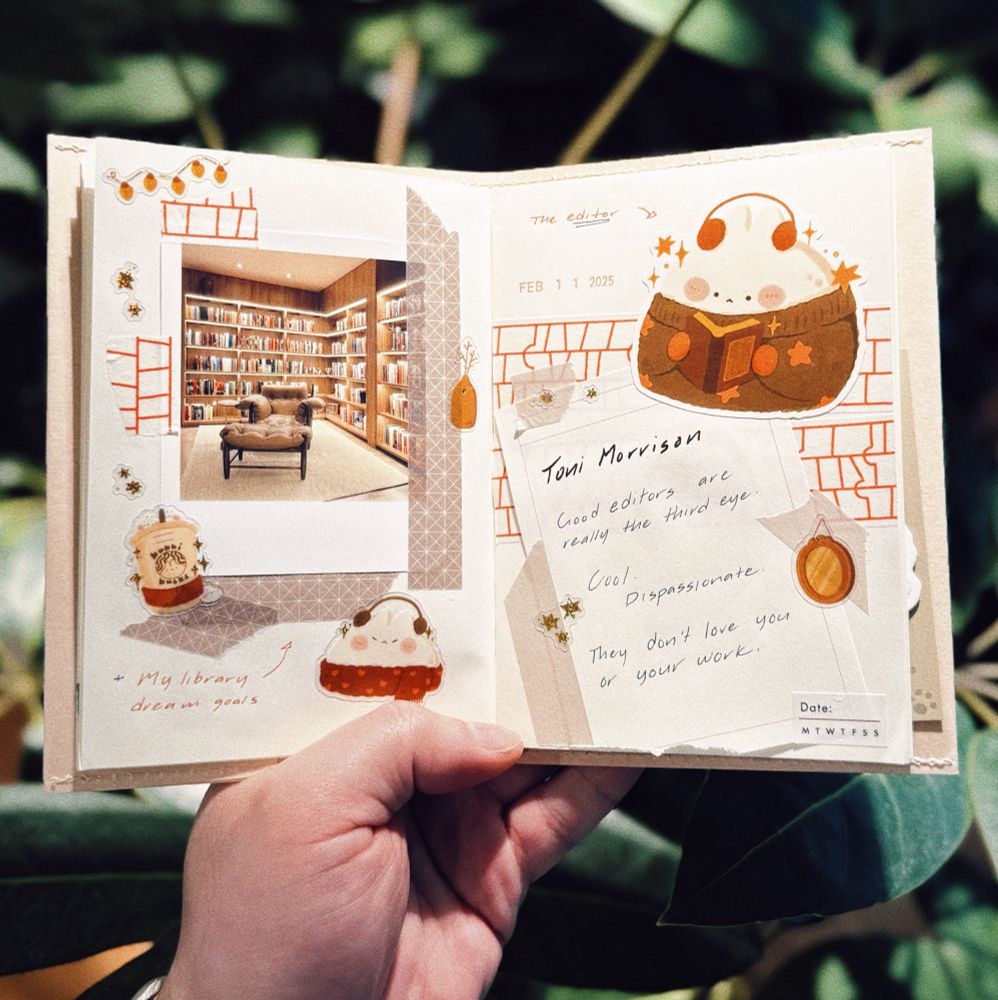 + My library
dream goals
The editor
FEB 11 2025
Toni Morrison
Good editors are
really the third eye.
Cool.
Dispassionate.
They don't love you
or your work.
Date:
M T W T F S S